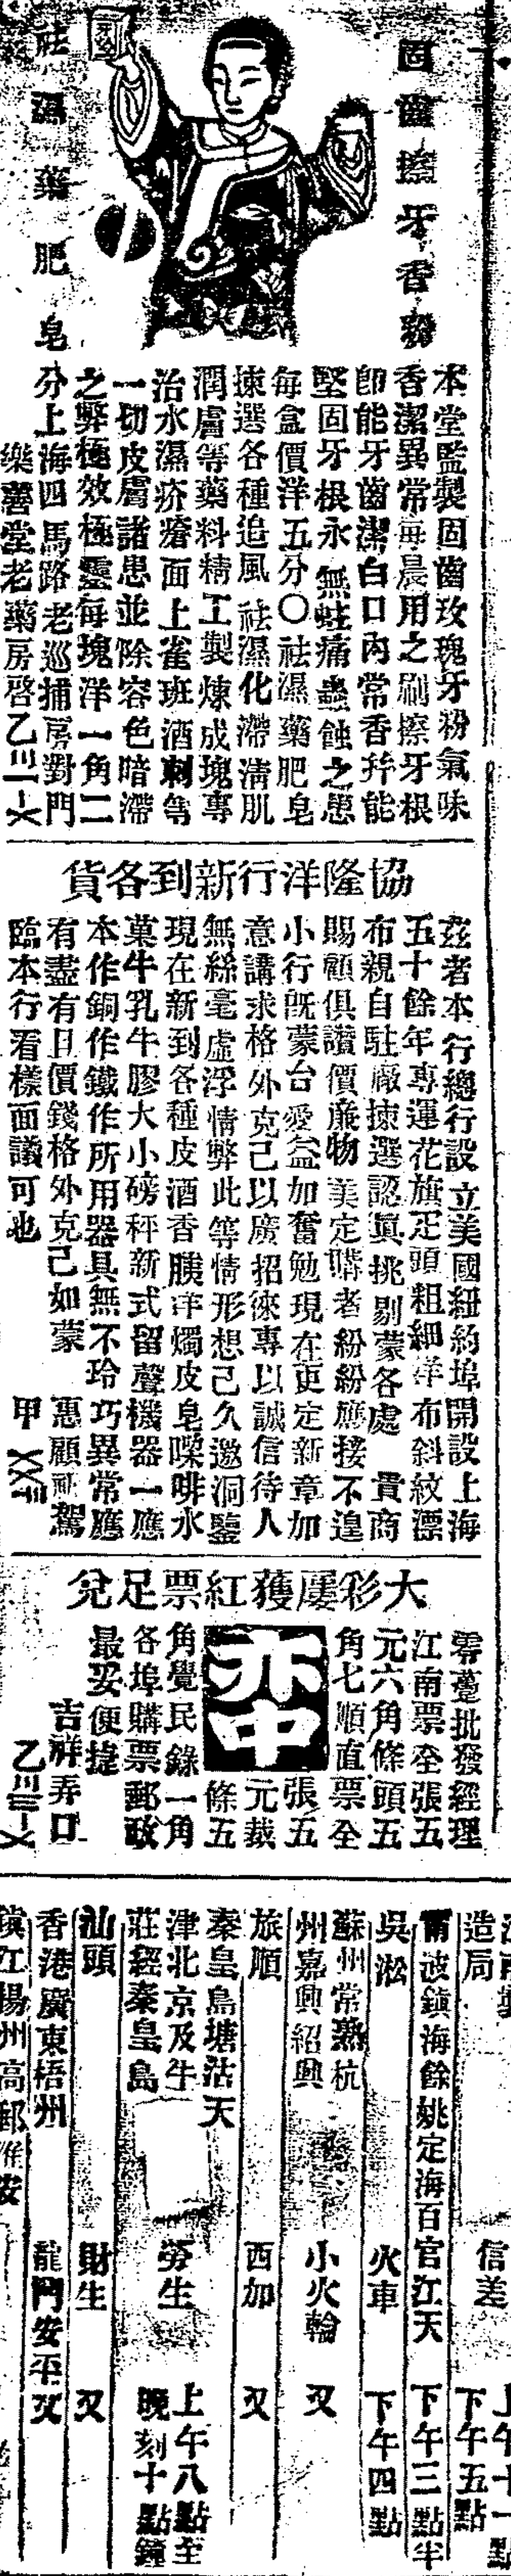 固齒擦牙香粉
祛濕藥肥皂
本堂監製固齒玫瑰牙粉氣味
香潔異常每晨用之刷擦牙根
卽能牙齒潔白口內常香并能
堅固牙根永無蛀痛蟲蝕之患
每盒價洋五分〇祛濕藥肥皂
揀選各種追風祛濕化滯淸肌
潤膚等藥料精工製煉成塊專
治水濕疥瘡面上雀班酒刺等
一切皮膚諸患並除容色暗滯
之弊極效極靈每塊洋一角二
分上海四馬路老巡捕房對門
樂善堂老藥房啓
協隆洋行新到各貨
茲者本行總行設立美國紐約埠開設上海
五十餘年專運花旗疋頭粗細洋布斜紋漂
布親自駐廠揀選認眞挑剔蒙各處貴商
賜顧俱讚價廉物美定購者紛紛應接不遑
小行旣蒙台愛益加奮勉現在更定新章加
意講求格外克己以廣招徠專以誠信待人
無絲毫虛浮情弊此等情形想已久邀洞鑒
現在新到各種皮酒香胰洋燭皮皂㗎啡水
菓牛乳牛膠大小磅秤新式留聲機器一應
本作銅作鐵作所用器具無不玲巧異常應
有盡有且價錢格外克己如蒙 惠顧祈駕
臨本行看樣面議可也 甲〤〤〣
大彩屢獲紅票足兌
零躉批發經理
江南票全張五
元六角條頭五
角七順直票全
張五
元裁
條五
亦中
角覺民錄一角
各埠購票郵政
最妥便捷
吉祥弄口
造局 信差 下午五點
甯波鎮海餘姚定海百官 江天 下午三點半
吳淞 火車 下午四點
蘇州常熟杭
州嘉興紹興 小火輪 又
旅順 西加 又
秦皇島塘沽天
津北京及牛
莊經秦皇島 勞生 上午八點至
晚刻十點鐘
汕頭 財生 又
香港廣東梧州 龍門安平 又
鎮江揚州高郵淮安